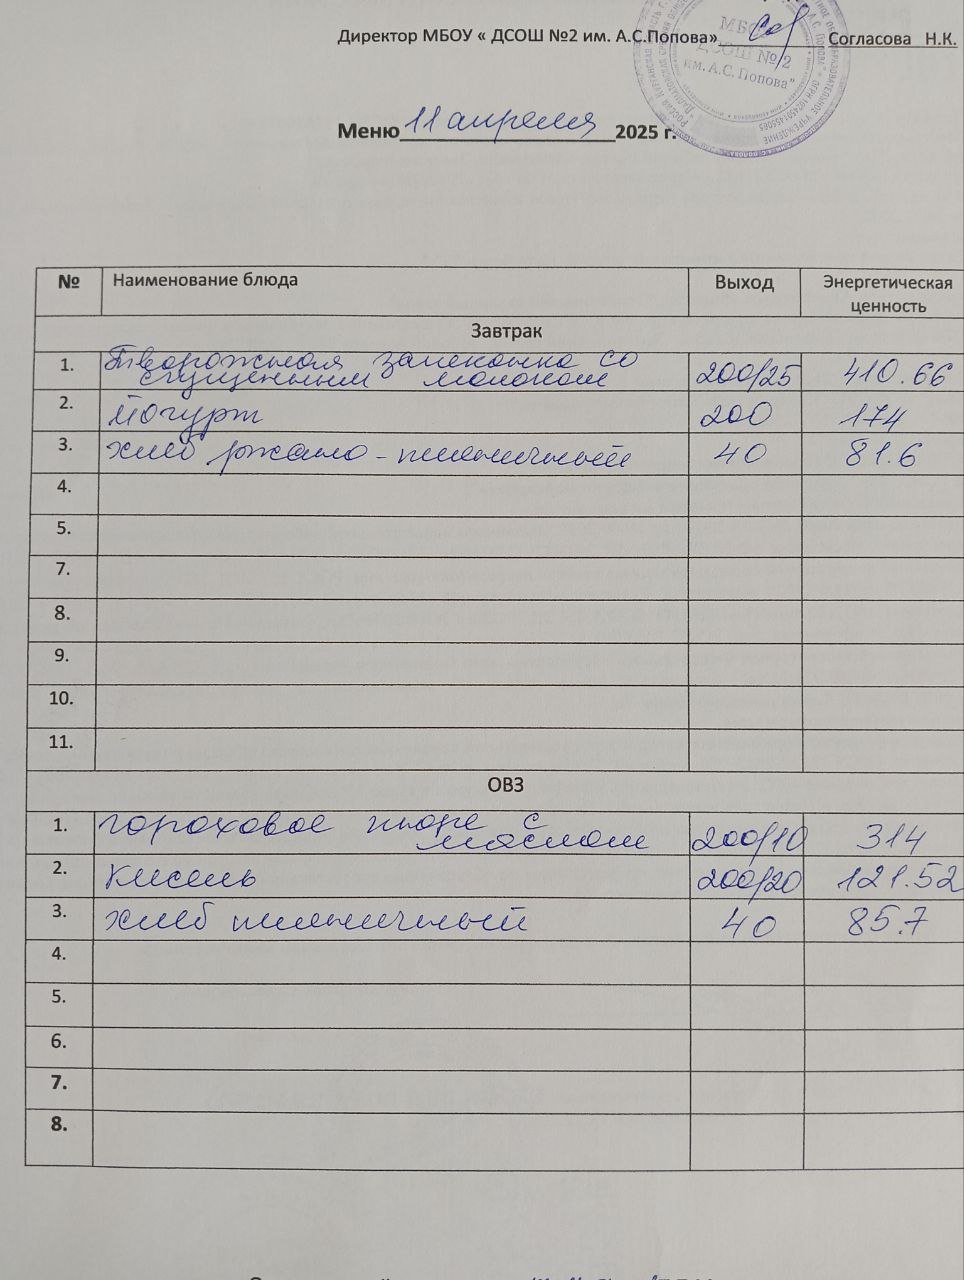 Директор МБОУ « ДСОШ №2 им. А.С.Попова» Согласова Н.К.
МБОУ
ДСОШ №2
им. А.С. Попова"
Меню 11 апреля 2025 г.
№ Наименование блюда Выход Энергетическая ценность
Завтрак
1. Творожная запеканка со
сгущенным молоком 200/25 410.66
2. Йогурт 200 174
3. хлеб ржано-пшеничный 40 81.6
4.
5.
7.
8.
9.
10.
11.
ОВЗ
1. гороховое пюре с
маслом 200/10 314
2. Кисель 200/20 121.52
3. хлеб пшеничный 40 85.7
4.
5.
6.
7.
8.